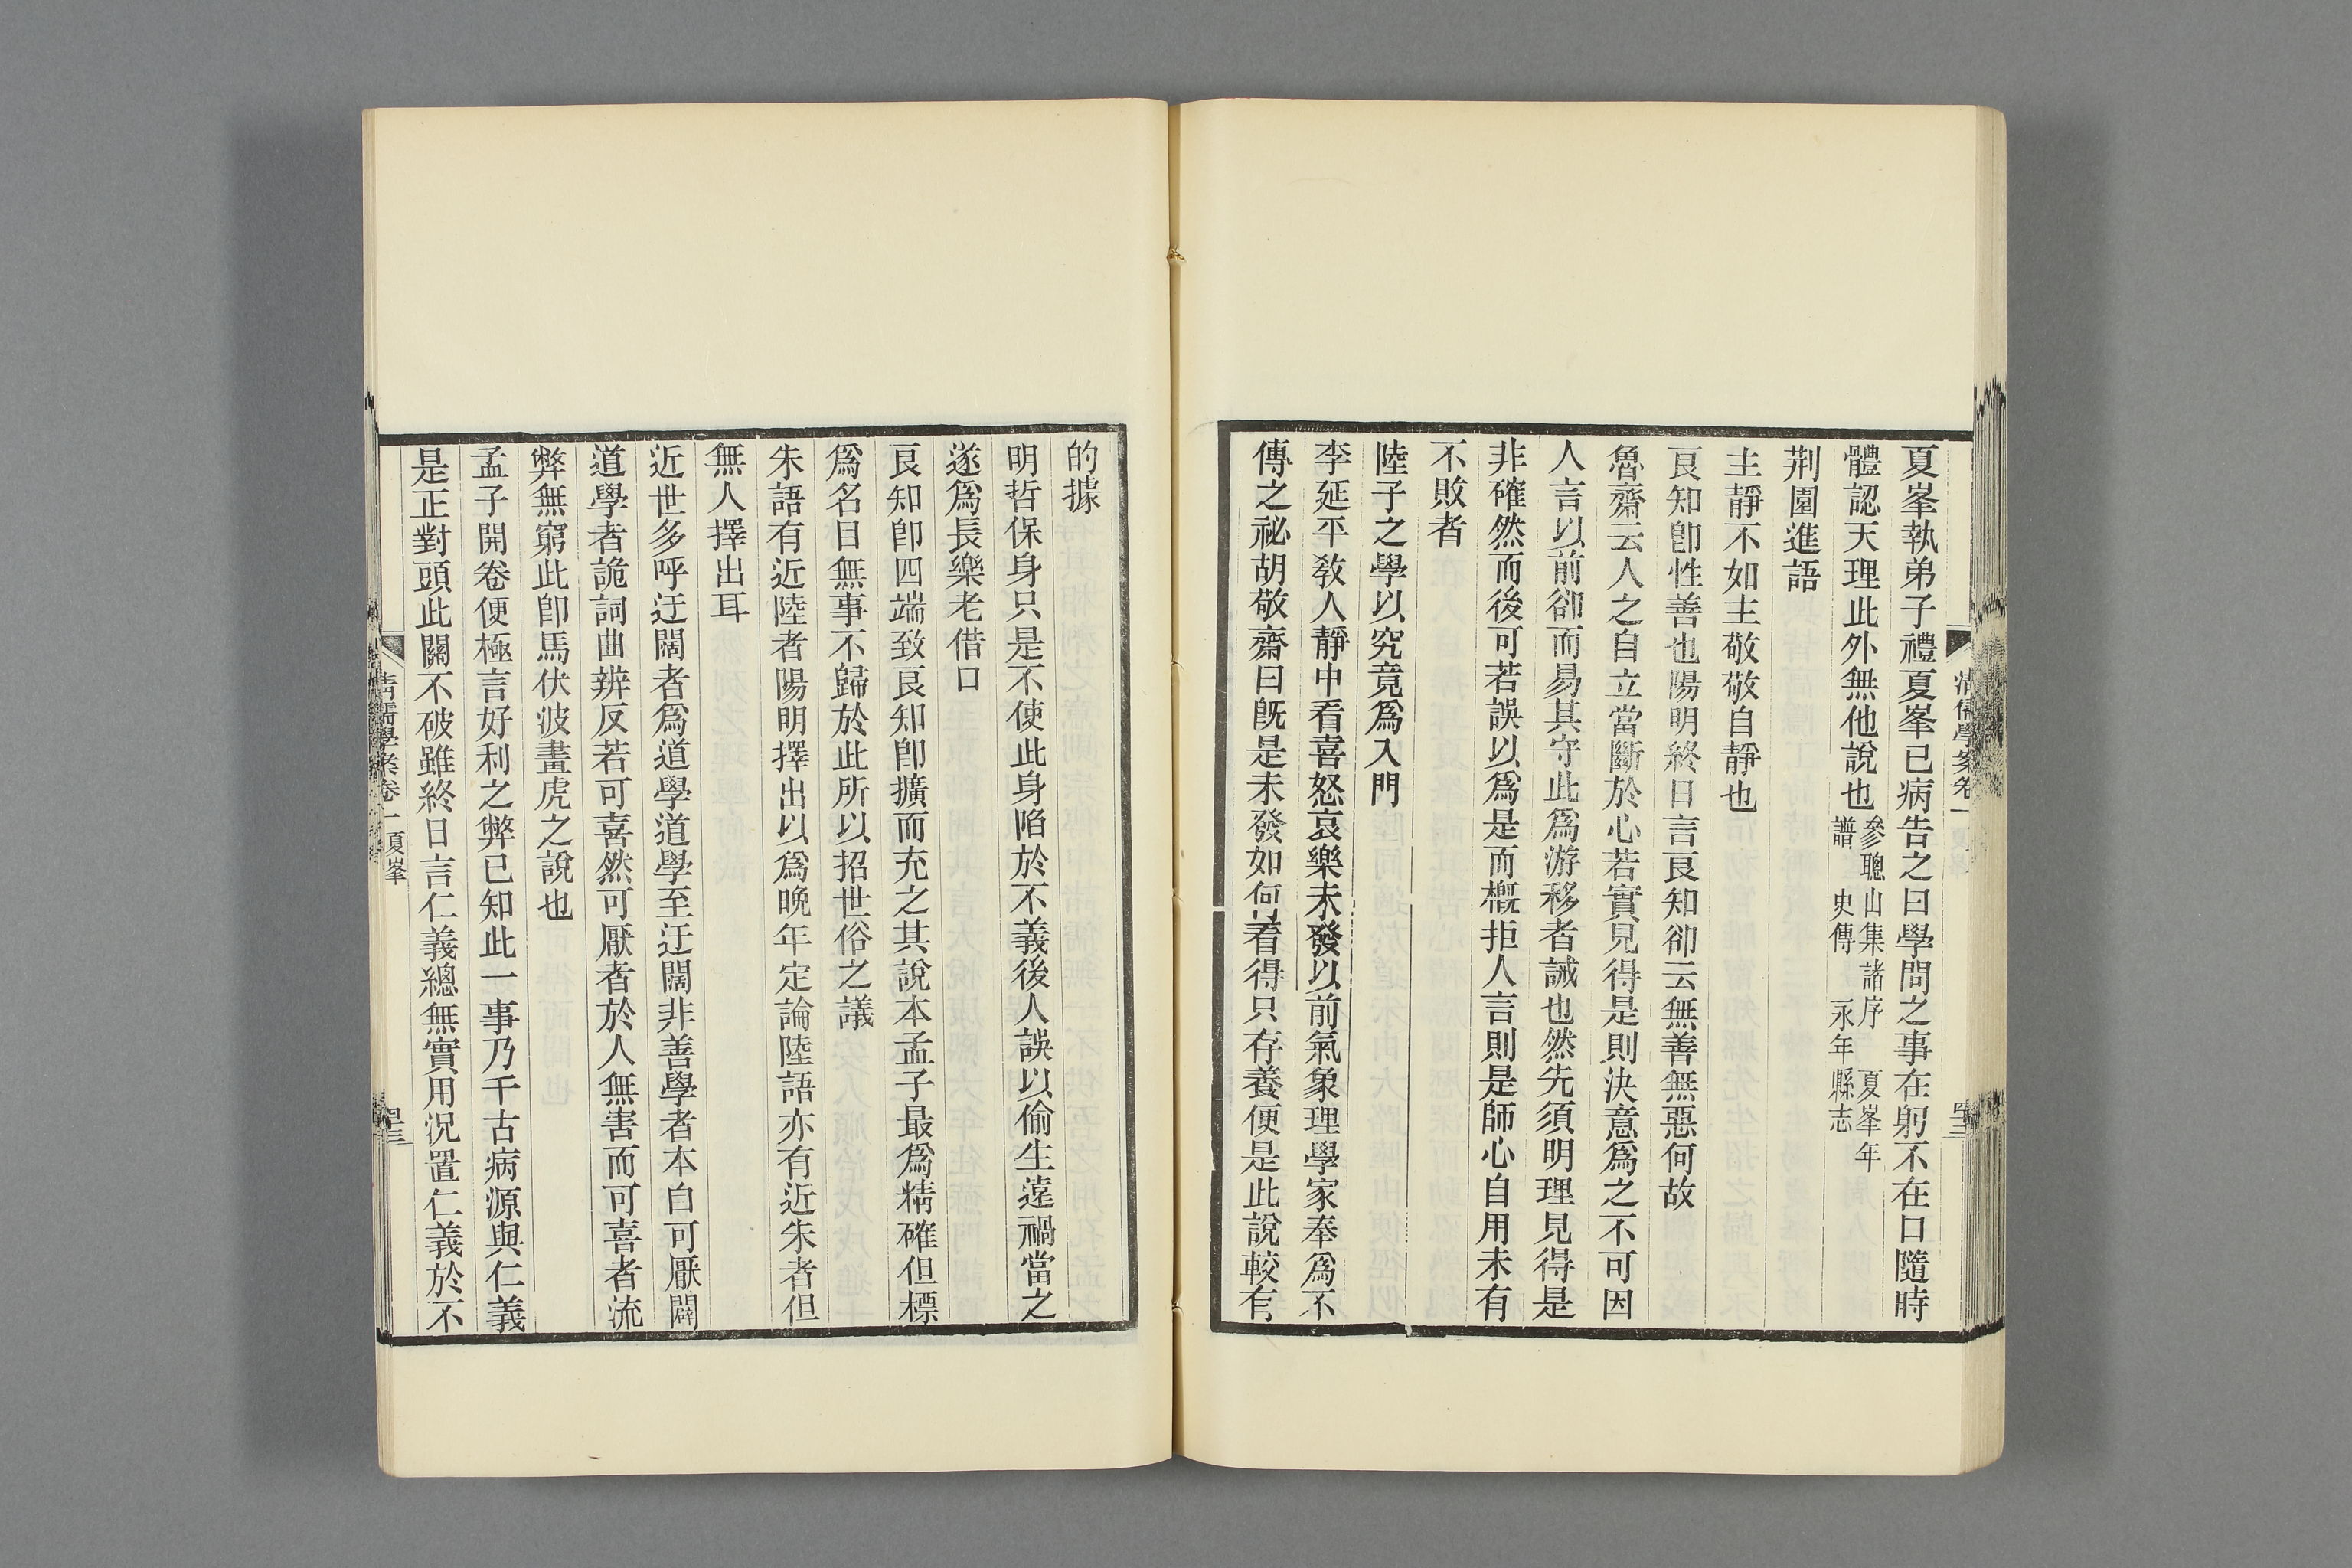 夏峯執弟子禮夏峯已病告之曰學問之事在躬不在口隨時
體認天理此外無他說也
參聰山集諸序 夏峯年
譜 史傳 永年縣志
荆園進語
主靜不如主敬敬自靜也
良知卽性善也陽明終日言良知卻云無善無惡何故
魯齋云人之自立當斷於心若實見得是則決意爲之不可因
人言以前卻而易其守此爲游移者誡也然先須明理見得是
非確然而後可若誤以爲是而槪拒人言則是師心自用未有
不敗者
陸子之學以究竟爲入門
李延平敎人靜中看喜怒哀樂未發以前氣象理學家奉爲不
傳之祕胡敬齋曰旣是未發如何看得只存養便是此說較有
清儒學案卷一 夏峯
的據
明哲保身只是不使此身陷於不義後人誤以偷生遠禍當之
遂爲長樂老借口
良知卽四端致良知卽擴而充之其說本孟子最爲精確但標
爲名目無事不歸於此所以招世俗之議
朱語有近陸者陽明擇出以爲晚年定論陸語亦有近朱者但
無人擇出耳
近世多呼迂闊者爲道學道學至迂闊非善學者本自可厭闢
道學者詭詞曲辨反若可喜然可厭者於人無害而可喜者流
弊無窮此卽馬伏波畫虎之說也
孟子開卷便極言好利之弊已知此一事乃千古病源與仁義
是正對頭此關不破雖終日言仁義總無實用況置仁義於不
清儒學案卷一 夏峯